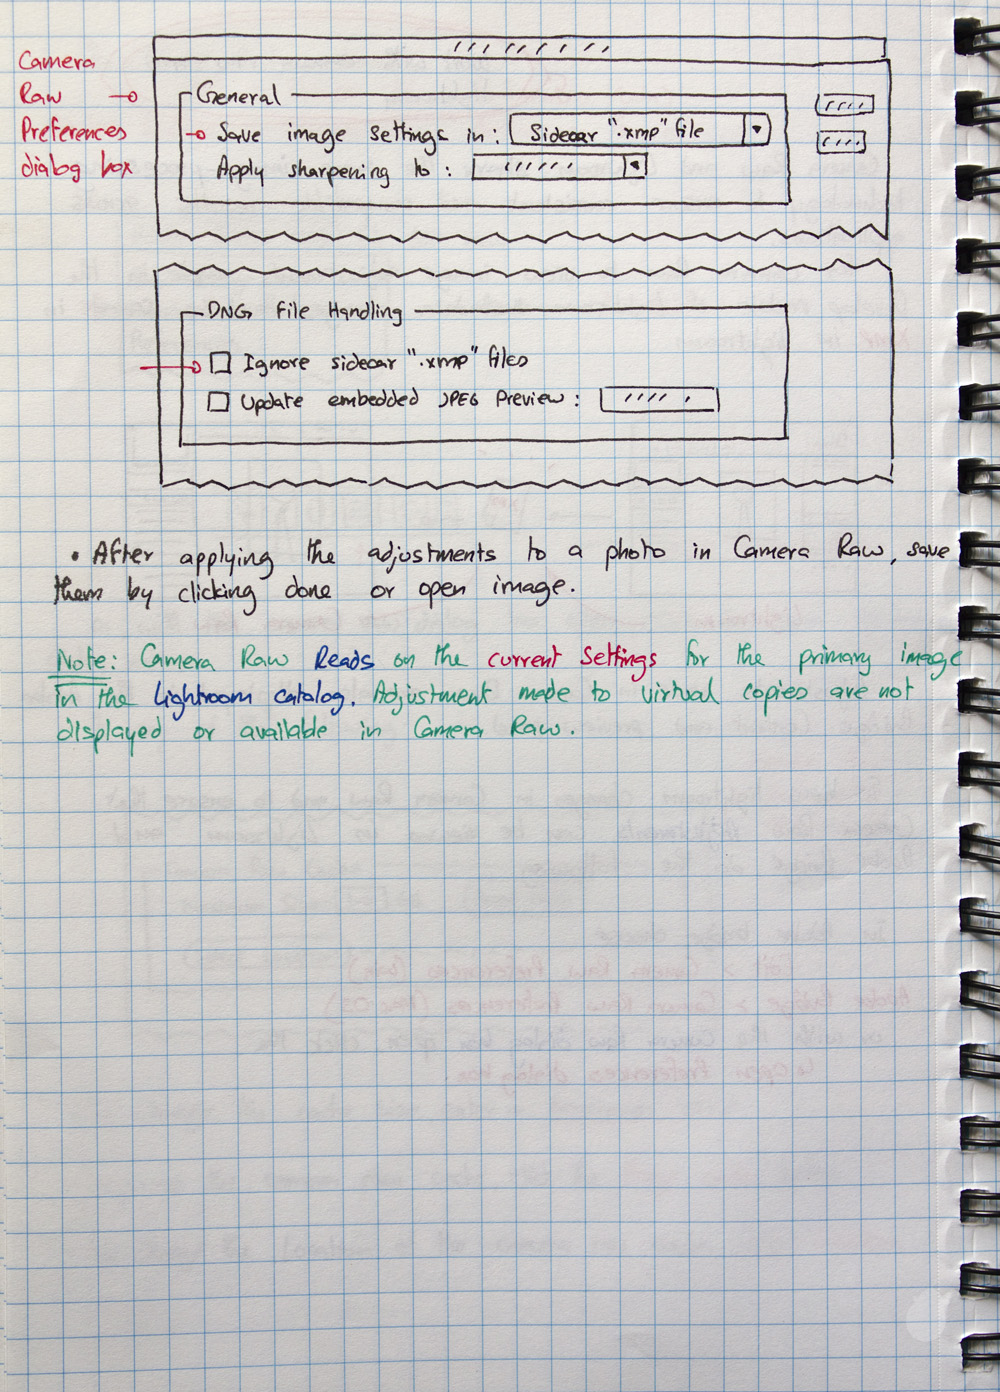 Camera
Raw
Preferences
dialog box
General
Save image settings in: Sidecar ".xmp" file
Apply sharpening to:
DNG File Handling
Ignore sidecar ".xmp" files
Update embedded JPEG Preview:
• After applying the adjustments to a photo in Camera Raw, save
them by clicking done or open image.
Note: Camera Raw Reads on the current settings for the primary image
in the Lightroom catalog. Adjustment made to virtual copies are not
displayed or available in Camera Raw.